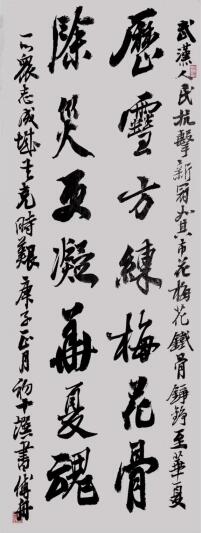 武漢人民抗擊新冠如其市花梅花鐵骨錚錚至華夏
歷雪方練梅花骨
除災更凝華夏魂
一心衆志成城共克時艱庚子正月初十撰書